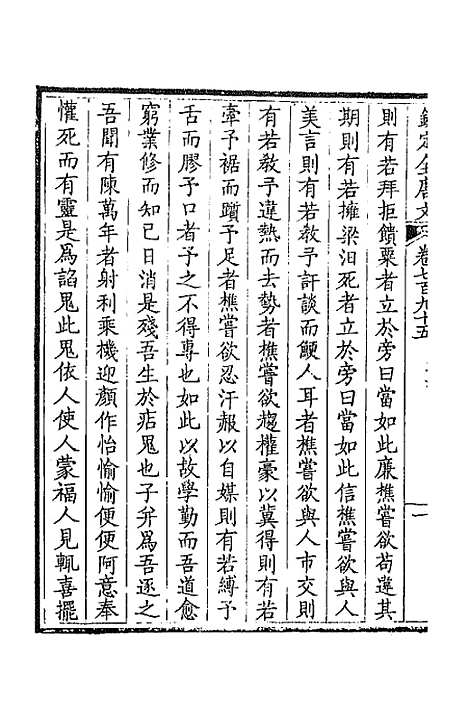 欽定全唐文 卷七百九十五
則有若拜拒饋粟者立於旁曰當如此廉樵嘗欲苟違其
期則有若擁梁汩死者立於旁曰當如此信樵嘗欲與人
美言則有若敎予訐談而鯁人耳者樵嘗欲與人市交則
有若敎予違熱而去勢者樵嘗欲趨權豪以冀得則有若
牽予裾而躓予足者樵嘗欲忍汗赧以自媒則有若縛予
舌而膠予口者予之不得專也如此以故學勤而吾道愈
窮業修而知已日消是殘吾生於㾡鬼也子幷爲吾逐之
吾聞有陳萬年者射利乘機迎顏作怡愉愉便便阿意奉
懽死而有靈是爲諂鬼此鬼依人使人蒙福人見輒喜擺